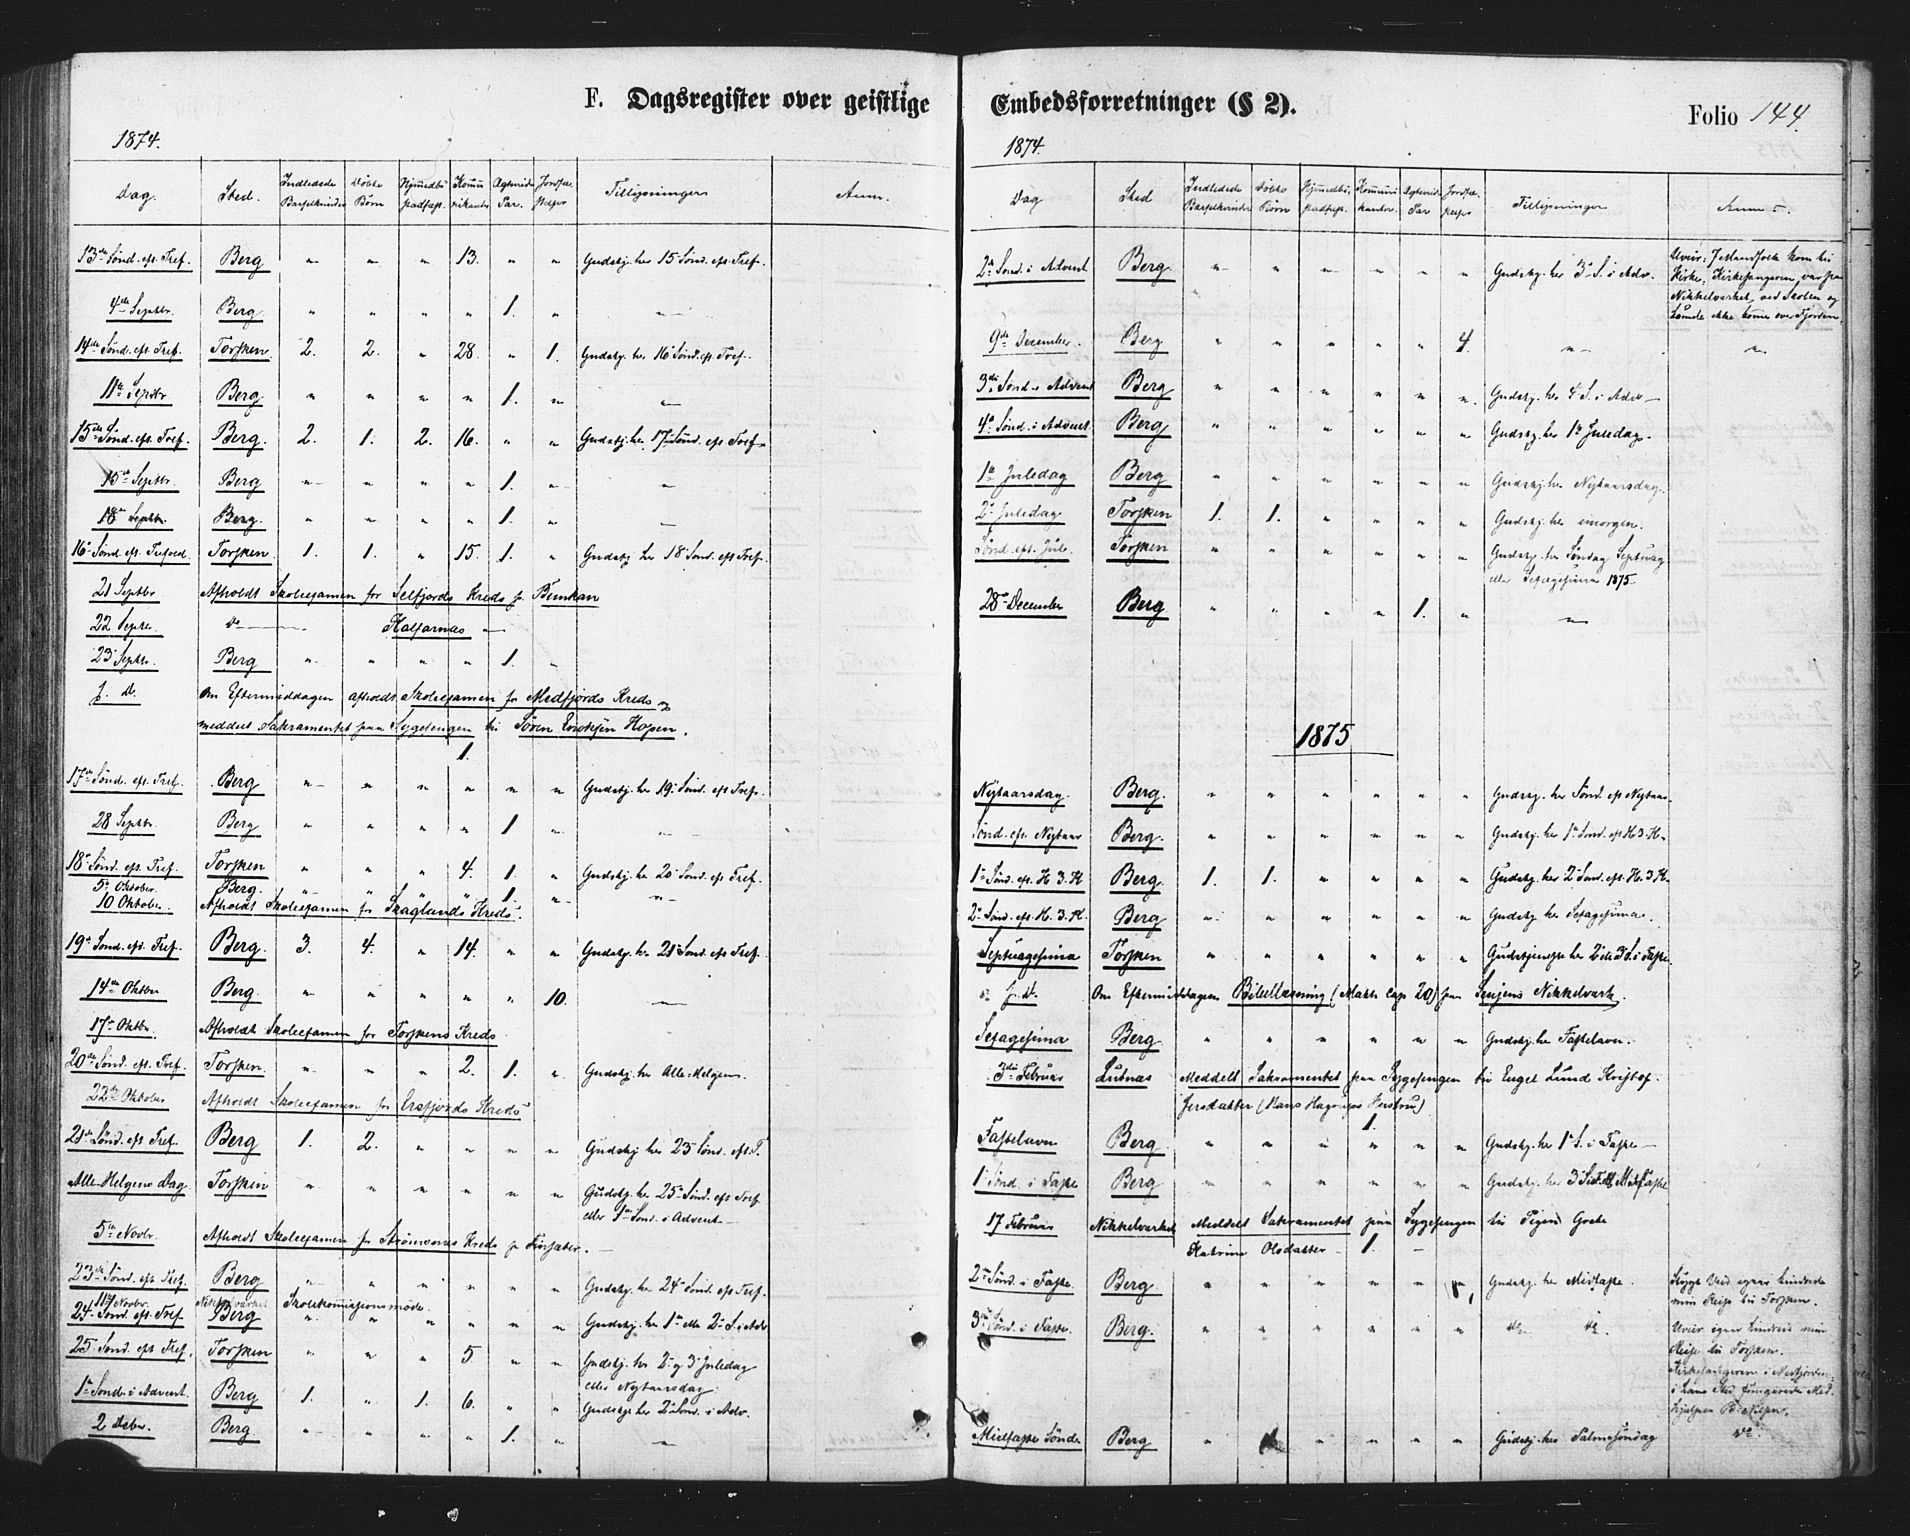 F. Dagsregister over geistlige
1874.
Dag. Sted. Indledede Barselkvinder Døbte Børn Hjemmedøbt stadfæst. Kommunikanter Ægteviede Par. Jordfæstelser Tillysninger Anm.
13de Sønd. eft. Tref. Berg " " " 13. " " Gudstj. her 15 Sønd. eft. Tref.
4de Septbr. Berg " " " " 1. " "
14de Sønd. eft. Tref. Torsken 2. 2. " 28. " 1. Gudstj. her 16 Sønd. eft. Tref.
11te Septbr Berg " " " " 1. " "
15de Sønd. eft. Tref. Berg. 2. 1. 2. 16. " " Gudstj. her 17 Sønd. eft. Tref.
15de Septbr. Berg " " " " 1. " "
18de Septbr. Berg. " " " " 1. " "
16de Sønd. eft. Trefoed Torsken 1. 1. " 15. 1. " Gudstj. her 18 Sønd. eft. Tref.
21 Septbr Afholdt Skoleexamen for Selfjords Kreds p.
22 Septbr. do
23 Septbr. Berg " " " " 1. "
f. D. Om Eftermiddagen afholdt Skoleexamen for Medfjords Kreds og
meddelt Sakramentet paa Sygesengen til Søren Hopen.
1.
17de Sønd. eft. Tref. Berg " " " " " " Gudstj. her 19 Sønd. eft. Tref.
28 Septbr. Berg " " " " 1. " "
18de Sønd. eft. Tref. Torsken " " " 4. 1. " Gudstj. her 20 Sønd. eft. Tref.
5te Oktober. Berg. " " " " 1. " "
10 Oktober. Afholdt Skoleexamen for Skaglands Kreds.
19de Sønd. eft. Tref. Berg. 3. 4. " 14. " " Gudstj. her 21 Sønd. eft. Tref.
14de Oktbr Berg " " " " " 10. "
17de Oktbr. Afholdt Skoleexamen for Torskens Kreds
20de Sønd. eft. Tref. Torsken. " " " 2. 1. " Gudstj. her Alle Helgen.
22de Oktober Afholdt Skoleexamen for Ersfjords Kreds
21de Sønd. eft. Tref. Berg 1. 2. " " " " Gudstj. her 23 Sønd. eft. T.
Alle Helgens Dag Torsken " " " " " " Gudstj. her 25 Sønd. eft. Tref
eller 1ste Sønd. i Advent
5te Novbr. Afholdt Skoleexamen for Kreds p.
23de Sønd. eft. Tref. Berg " " " " " " Gudstj. her 24 Sønd. eft. Tref.
11te Novbr. Nikkelværket Skolekommissionsmøde.
24 Sønd. eft. Tref Berg " " " " " " Gudstj. her 1ste eller 2den S. i Adv
25 Sønd. eft. Tref. Torsken " " " 5. " " Gudstj. her 2 og 3 Juledag
eller Nytaarsdag.
1ste Sønd. i Advent. Berg 1. " 1. 6. " " Gudstj. her 2 Sønd. i Adv.
2 Decbr. Berg. " " " " 1. " "
Embedsforretninger (§ 2).
Folio 144.
1874.
Dag Sted Indledede Barselkvinder Døbte Børn Hjemmedøbt stadfæst. Kommunikanter Ægteviede Par Jordfæstelser Tillysninger Anm
2den Sønd. i Advent Berg " " " " " " Gudstj. her 3 S. i Adv. Uveir: 7 Mandfolk kom til
Kirke. Kirkesangeren var paa
Nikkelværket ved Skolen og
kunde ikke komme over Fjorden.
9de December. Berg " " " " " 4. " "
3die Sønd. i Advent Berg " " " " " " Gudstj. her 4 S. i Adv.
4de Sønd. i Advent. Berg " " " " " " Gudstj. her 1ste Juledag.
1ste Juledag Berg " " " " " " Gudstj. her Nytaarsdag.
2den Juledag Torsken 1. 1. " " " " Gudstj. her imorgen.
Sønd. eft. Jul. Torsken " " " " " " Gudstj. her Søndag Septuag
eller Sexagesima 1875.
28de December Berg " " " " 1. " "
1875
Nytaarsdag. Berg. " " " " " " Gudstj. her Sønd. eft Nytaar.
Sønd. eft. Nytaar Berg. " " " " " " Gudstj. her 1ste Sønd. eft H. 3. K.
1ste Sønd. eft. H. 3. K Berg. 1. 1. " " " " Gudstj. her 2 Sønd. eft. H. 3. K.
2den Sønd. eft. H. 3. K. Berg " " " " " " Gudstj. her Sexagesima.
Septuagesima Torsken " " " " " " Gudstjeneste her 2 eller 3 S. i Faste.
f. D. Om Eftermiddagen Bibellæsning (Matth. cap 20) paa Senjens Nikkelværk.
Sexagesima Berg " " " " " " Gudstj. her Fastelavn.
3die Februar Lutnæs Meddelt Sakramentet paa Sygesengen til Engel Lund Kristof-
fersdatter (Hans Hustru)
1.
Fastelavn Berg. " " " " " " Gudstj. her 1ste S. i Faste
1ste Sønd. i Faste Berg " " " " " " Gudstj. her 3 S. i F. eller Midfaste
17 Februar Nikkelværket Meddelt Sakramentet paa Sygesengen til Pigen
Katrine Olsdatter 1.
2den Sønd. i Faste. Berg " " " " " " Gudstj. her Midfaste. Stygt Veir igaar hindrede
min Reise til Torsken.
3die Sønd. i Faste. Berg. " " " " " " do do. Uveir igaar hindrede min
Reise til Torsken.
Kirkesangeren i
i hans Sted fungerede
Midfaste Sønd. Berg " " " " " Gudstj. her Palmesøndag do.